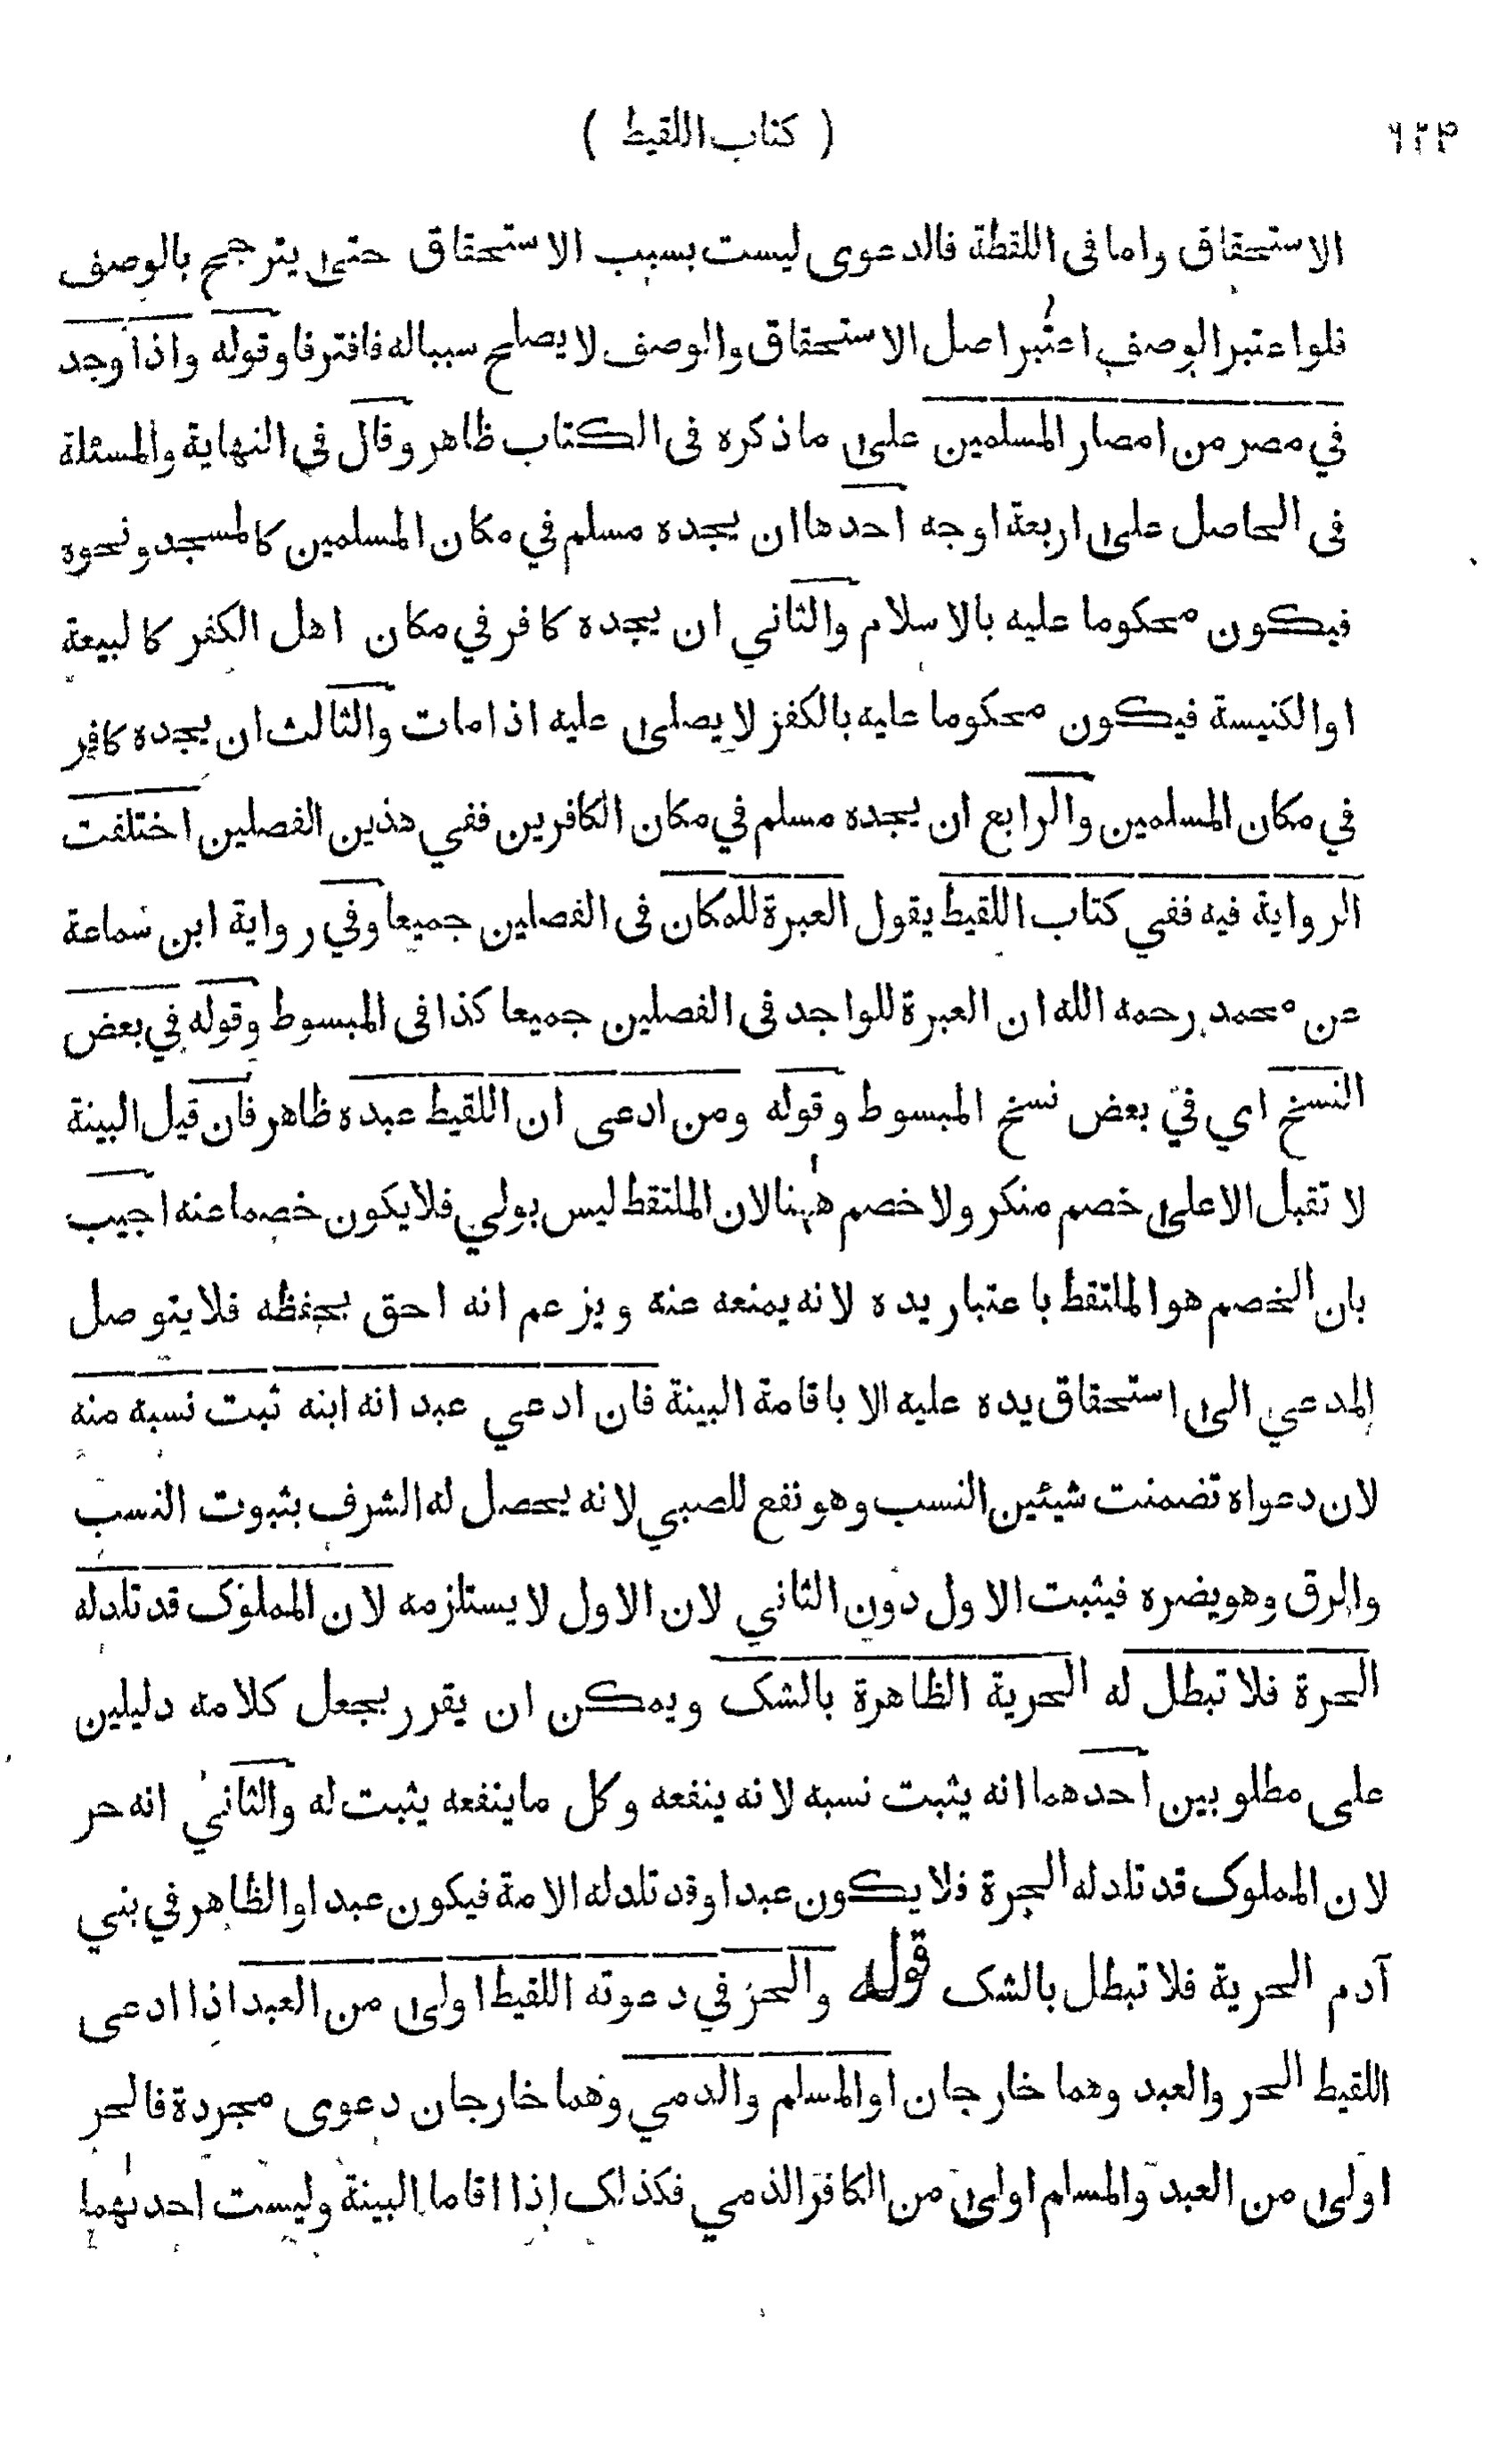 ٦٢٣
( كتاب اللقيط )
الاستحقاق واما فى اللقطة فالدعوى ليست بسبب الاستحقاق حتى يترجح بالوصف
فلو اعتبر الوصف اعتبر اصل الاستحقاق والوصف لا يصلح سبباله فافترقا وقوله واذا وجد
في مصر من امصار المسلمين على ما ذكره فى الكتاب ظاهر وقال في النهاية والمسئلة
فى الحاصل على اربعة اوجه احدها ان يجده مسلم في مكان المسلمين كالمسجد ونحوه
فيكون محكوما عليه بالاسلام والثاني ان يجده كافر في مكان اهل الكفر كالبيعة
او الكنيسة فيكون محكوما عليه بالكفر لا يصلى عليه اذا مات والثالث ان يجده كافر
في مكان المسلمين والرابع ان يجده مسلم في مكان الكافرين ففي هذين الفصلين اختلفت
الرواية فيه ففي كتاب اللقيط يقول العبرة للمكان فى الفصلين جميعا وفي رواية ابن سماعة
عن محمد رحمه الله ان العبرة للواجد فى الفصلين جميعا كذا فى المبسوط وقوله في بعض
النسخ اي في بعض نسخ المبسوط وقوله ومن ادعى ان اللقيط عبده ظاهر فان قيل البينة
لا تقبل الا على خصم منكر ولا خصم ههنا لان الملتقط ليس بولي فلا يكون خصما عنه اجيب
بان الخصم هو الملتقط باعتبار يده لانه يمنعه عنه ويزعم انه احق بحفظه فلا يتوصل
المدعي الى استحقاق يده عليه الا باقامة البينة فان ادعي عبد انه ابنه ثبت نسبه منه
لان دعواه تضمنت شيئين النسب وهو نفع للصبي لانه يحصل له الشرف بثبوت النسب
والرق وهو يضره فيثبت الاول دون الثاني لان الاول لا يستلزمه لان المملوك قد تلدله
الحرة فلا تبطل له الحرية الظاهرة بالشك ويمكن ان يقرر بجعل كلامه دليلين
على مطلوبين احدهما انه يثبت نسبه لانه ينفعه وكل ما ينفعه يثبت له والثاني انه حر
لان المملوك قد تلدله الحرة فلا يكون عبدا وقد تلدله الامة فيكون عبدا والظاهر في بني
آدم الحرية فلا تبطل بالشك قوله والحر في دعوته اللقيط اولى من العبد اذا ادعى
اللقيط الحر والعبد وهما خارجان او المسلم والذمي وهما خارجان دعوى مجردة فالحر
اولى من العبد والمسلم اولى من الكافر الذمي فكذلك اذا اقاما البينة وليست احدٰهما